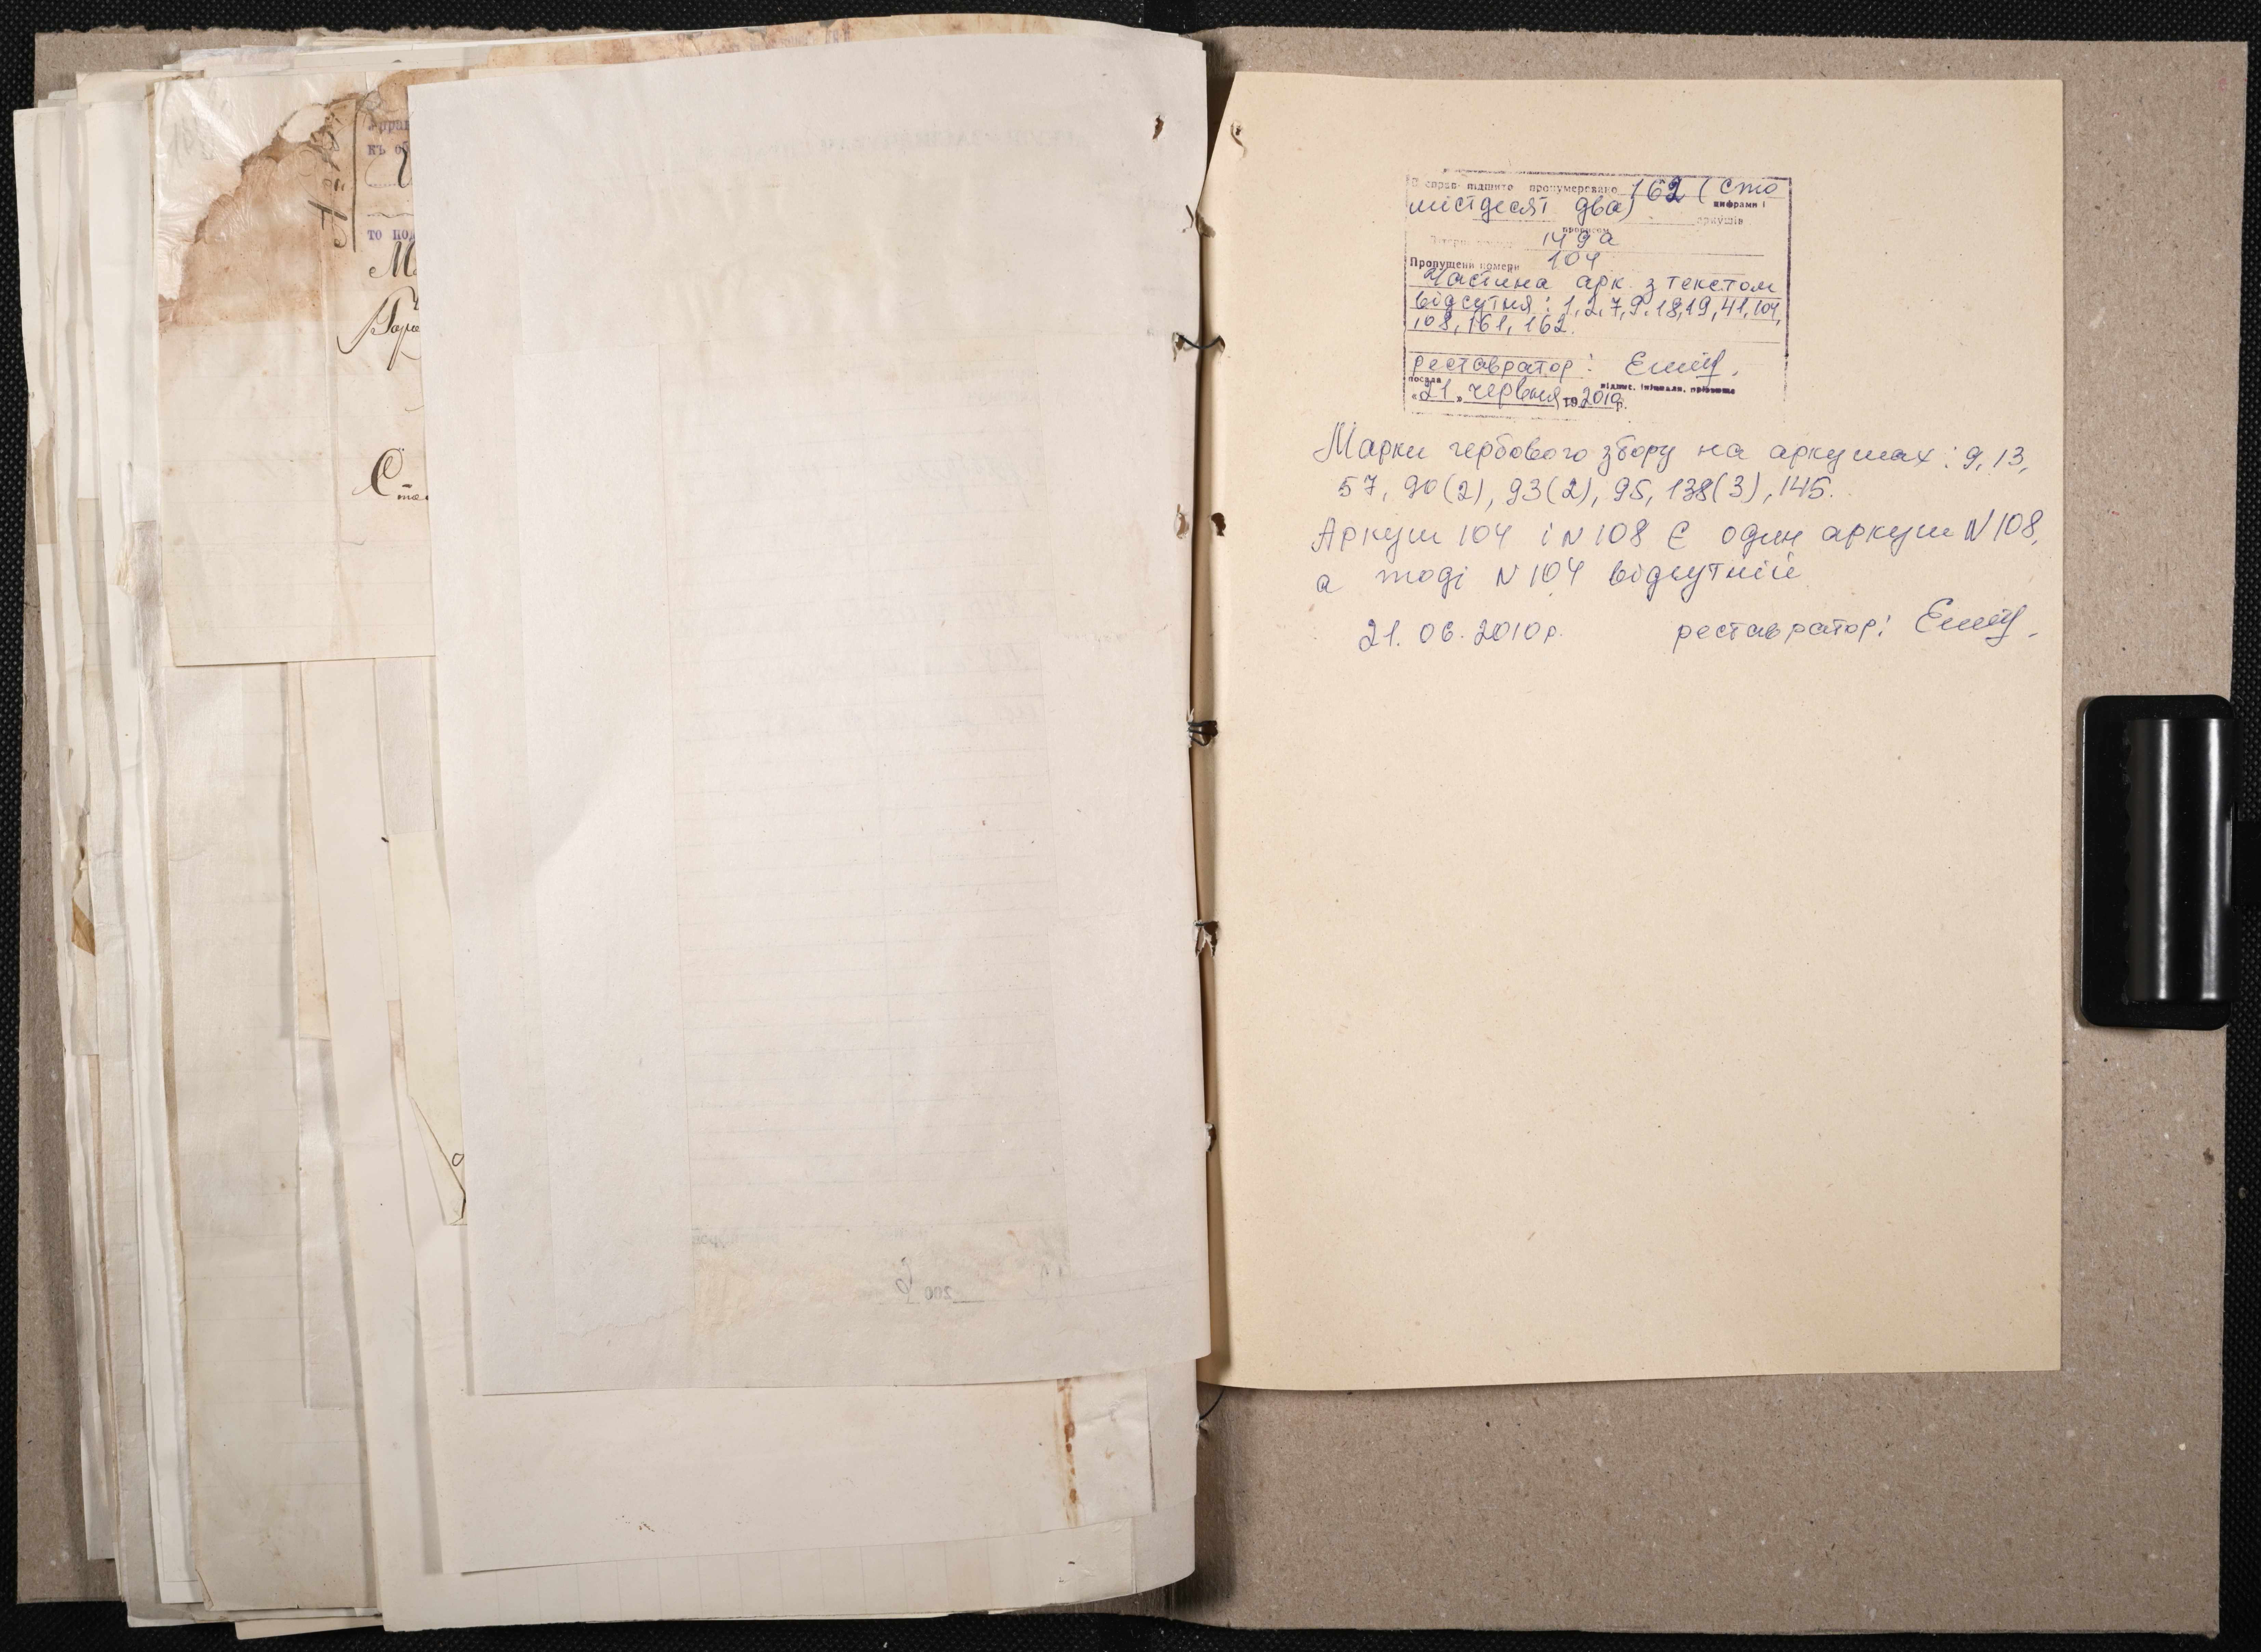 къ об
то под
Ста
200
В справі підшито пронумеровано 162 (сто
цифрами і
шістдесят два) аркушів
прописом
149а
Пропущені номери 104
Частина арк. з текстом
відсутня: 1,2,7,9,18,19,41,104,
108,161,162.
реставратор:
посада
підпис, ініціали, прізвище
«21» червня 19 2010р.
Марки гербового збору на аркушах: 9, 13,
57, 90(2), 93(2), 95, 138(3), 145.
Аркуш 104 і N 108 є один аркуш N 108,
а тоді N 104 відсутній
21. 06. 2010р. реставратор: